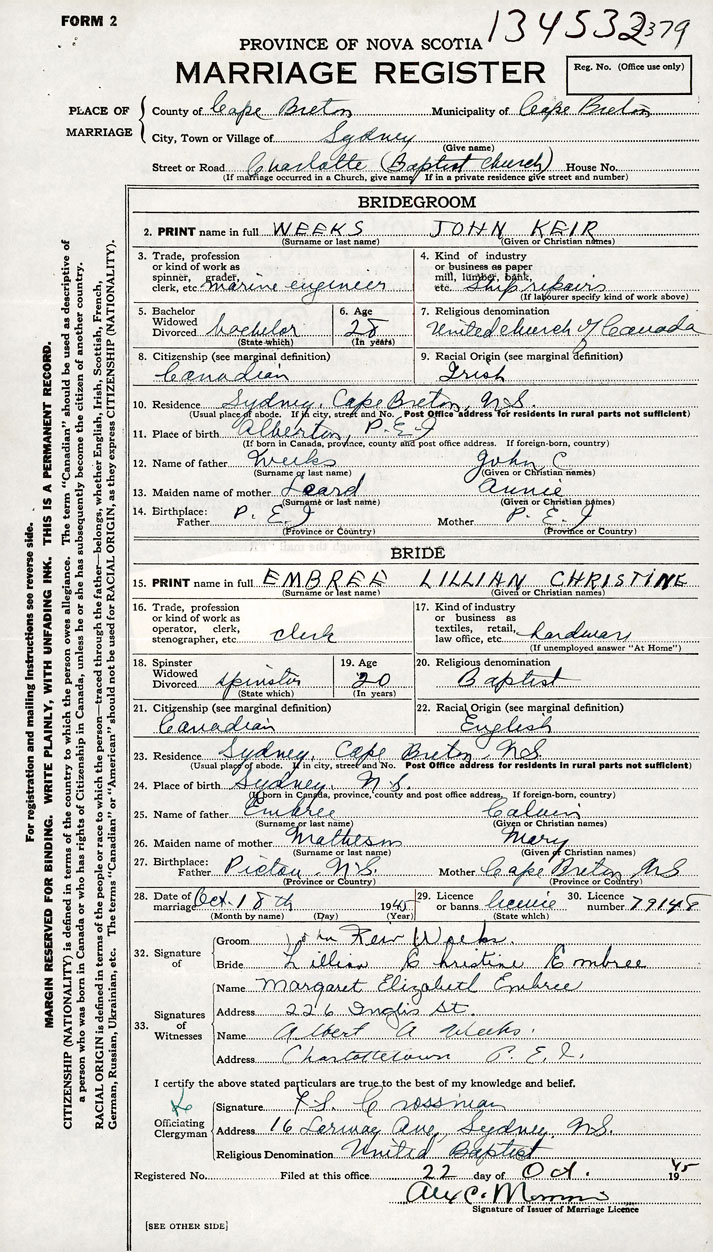 FORM 2
134532 379
PROVINCE OF NOVA SCOTIA
MARRIAGE REGISTER
Reg. No. (Office use only)
PLACE OF MARRIAGE
County of Cape Breton Municipality of Cape Breton
City, Town or Village of Sydney
(Give name)
Street or Road Charlotte (Baptist Church) House No.
(If marriage occurred in a Church, give name. If in a private residence give street and number)
BRIDEGROOM
2. PRINT name in full WEEKS JOHN KEIR
(Surname or last name) (Given or Christian names)
3. Trade, profession or kind of work as spinner, grader, clerk, etc. marine engineer
4. Kind of industry or business as paper mill, lumber, bank, etc. Ship repairs
(If labourer specify kind of work above)
5. Bachelor Widowed Divorced bachelor
(State which)
6. Age 28
(In years)
7. Religious denomination
United Church of Canada
8. Citizenship (see marginal definition)
Canadian
9. Racial Origin (see marginal definition)
Irish
10. Residence Sydney, Cape Breton, N.S.
(Usual place of abode. If in city, street and No. Post Office address for residents in rural parts not sufficient)
11. Place of birth Alberton, P.E.I
(If born in Canada, province, county and post office address. If foreign-born, country)
12. Name of father Weeks John C
(Surname or last name) (Given or Christian names)
13. Maiden name of mother Leard Annie
(Surname or last name) (Given or Christian names)
14. Birthplace: Father P.E.I Mother P.E.I
(Province or Country) (Province or Country)
BRIDE
15. PRINT name in full EMBREE LILLIAN CHRISTINE
(Surname or last name) (Given or Christian names)
16. Trade, profession or kind of work as operator, clerk, stenographer, etc. clerk
17. Kind of industry or business as textiles, retail, law office, etc. hardware
(If unemployed answer "At Home")
18. Spinster Widowed Divorced spinster
(State which)
19. Age 20
(In years)
20. Religious denomination
Baptist
21. Citizenship (see marginal definition)
Canadian
22. Racial Origin (see marginal definition)
English
23. Residence Sydney, Cape Breton, N.S.
(Usual place of abode. If in city, street and No. Post Office address for residents in rural parts not sufficient)
24. Place of birth Sydney, N.S.
(If born in Canada, province, county and post office address. If foreign-born, country)
25. Name of father Embree Calvin
(Surname or last name) (Given or Christian names)
26. Maiden name of mother Matheson Mary
(Surname or last name) (Given or Christian names)
27. Birthplace: Father Pictou N.S. Mother Cape Breton N.S
(Province or Country) (Province or Country)
28. Date of marriage Oct. 18th 1945
(Month by name) (Day) (Year)
29. Licence or banns licence
(State which)
30. Licence number 79148
32. Signature of
Groom John Keir Weeks.
Bride Lillian Christine Embree
33. Signatures of Witnesses
Name Margaret Elizabeth Embree
Address 226 Inglis St.
Name Albert A Weeks.
Address Charlottetown P.E.I.
I certify the above stated particulars are true to the best of my knowledge and belief.
Officiating Clergyman
Signature F.S. Crossman
Address 16 Ave, Sydney, N.S.
Religious Denomination United Baptist
Registered No. Filed at this office 22 day of Oct. 1945
Alex C.
Signature of Issuer of Marriage Licence
[SEE OTHER SIDE]
For registration and mailing instructions see reverse side.
MARGIN RESERVED FOR BINDING. WRITE PLAINLY, WITH UNFADING INK. THIS IS A PERMANENT RECORD.
CITIZENSHIP (NATIONALITY) is defined in terms of the country to which the person owes allegiance. The term "Canadian" should be used as descriptive of
a person who was born in Canada or who has rights of Citizenship in Canada, unless he or she has subsequently become the citizen of another country.
RACIAL ORIGIN is defined in terms of the people or race to which the person—traced through the father—belongs, whether English, Irish, Scottish, French,
German, Russian, Ukrainian, etc. The terms "Canadian" or "American" should not be used for RACIAL ORIGIN, as they express CITIZENSHIP (NATIONALITY).